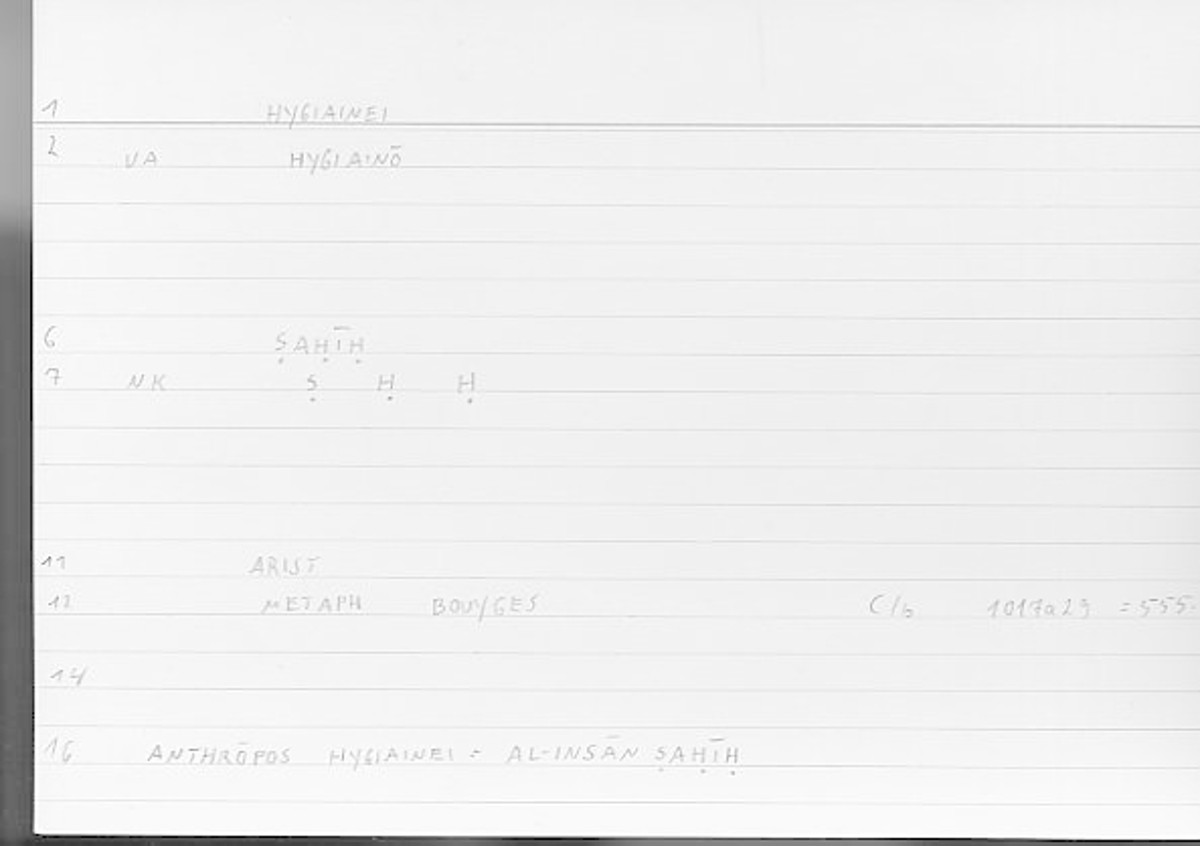 1 HYGIAINEI
2 VA HYGIAINŌ
6 ṢAḤĪḤ
7 NK Ṣ Ḥ Ḥ
11 ARIST
12 METAPH BOUYGES C/b 1017a29 =555.
14
16 ANTHRŌPOS HYGIAINEI = AL-INSĀN ṢAḤĪḤ